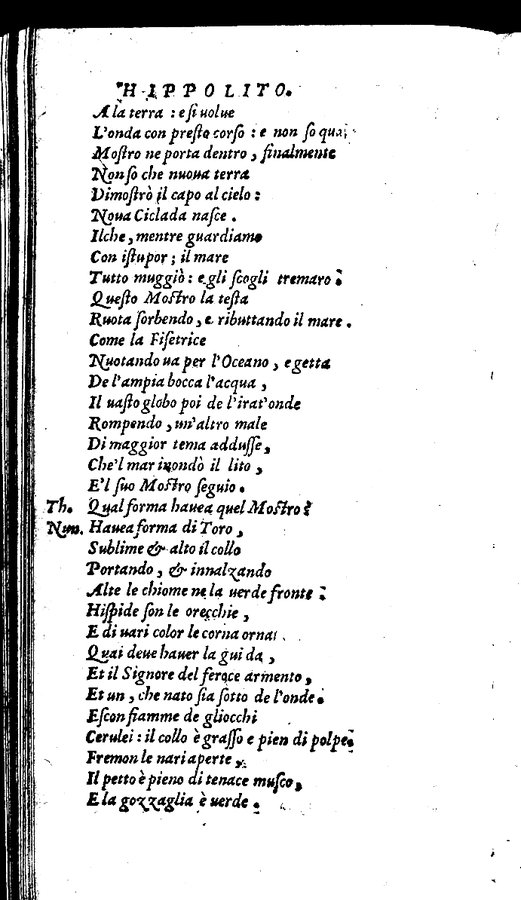 HIPPOLITO.
A la terra : e ſi uolue
L'onda con preſto corſo : e non ſo qual
Moſtro ne porta dentro, finalmente
Non ſo che nuoua terra
Dimoſtrò il capo al cielo :
Noua Ciclada naſce.
Ilche, mentre guardiamo
Con iſtupor; il mare
Tutto muggiò : e gli ſcogli tremaro :
Queſto Moſtro la teſta
Ruota ſorbendo, e ributtando il mare.
Come la Fiſetrice
Nuotando ua per l'Oceano, e getta
De l'ampia bocca l'acqua,
Il uaſto globo poi de l'irat'onde
Rompendo, un'altro male
Di maggior tema adduſſe,
Che'l mar inondò il lito,
E'l ſuo Moſtro ſeguio.
Th. Qual forma hauea quel Moſtro?
Nun. Hauea forma di Toro,
Sublime & alto il collo
Portando, & innalzando
Alte le chiome ne la uerde fronte :
Hiſpide ſon le orecchie,
E di uari color le corna ornat
Quai deue hauer la guida,
Et il Signore del feroce armento,
Et un, che nato ſia ſotto de l'onde.
Eſcon fiamme de gliocchi
Cerulei : il collo è graſſo e pien di polpe.
Fremon le nari aperte,
Il petto è pieno di tenace muſco,
E la gozzaglia è uerde.